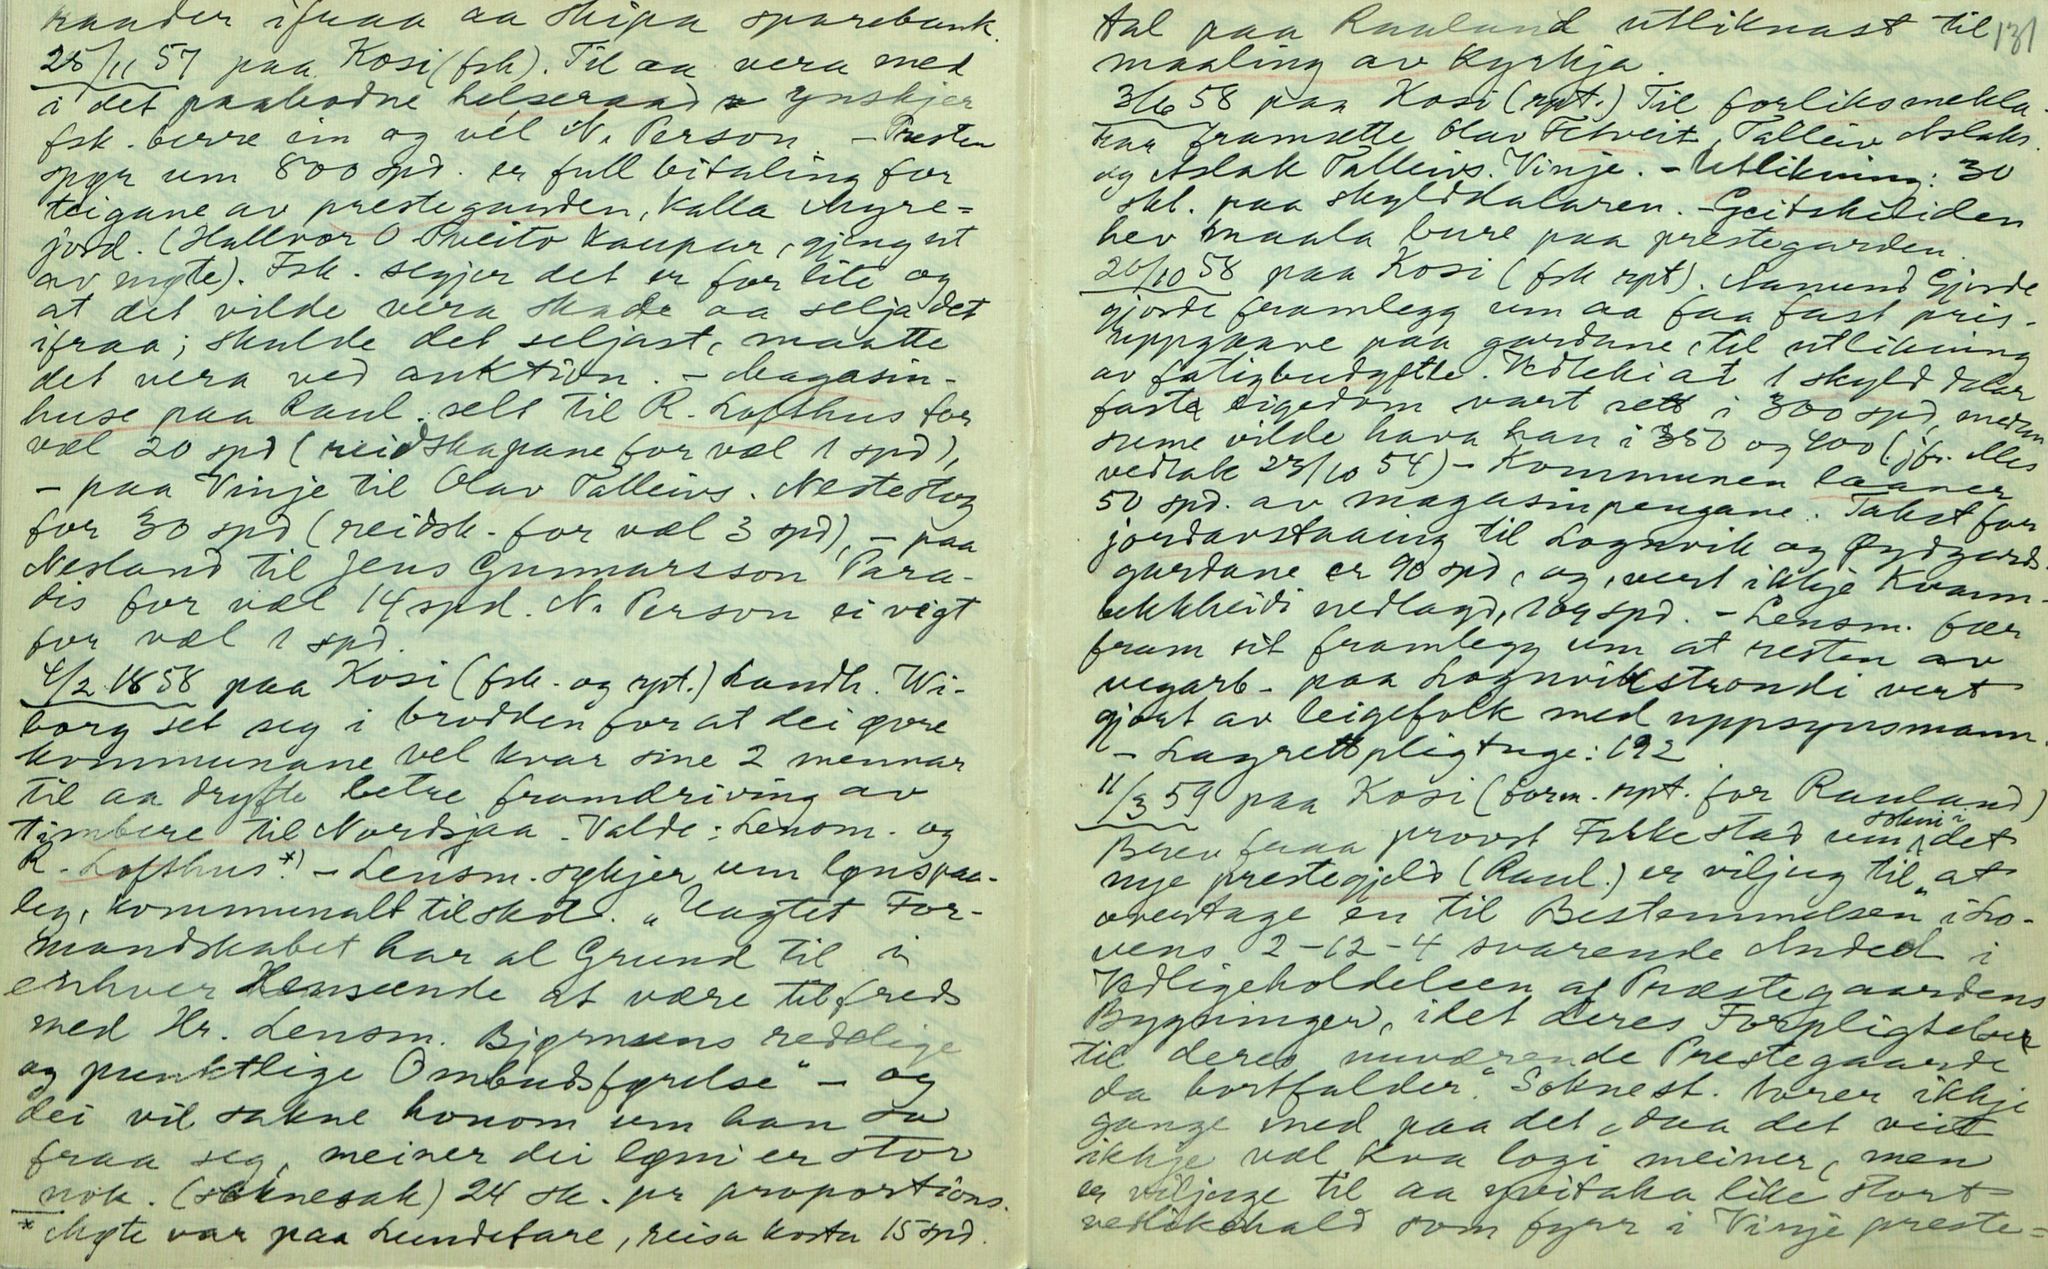 raader ifraa aa skipa sparebank.
28/11 57 paa Kosi (fsk). Til aa vera med
i det paabodne helseraad ynskjer
fsk. berre ein og vel N. Person. – Presten
spyr um 800 spd. er full bitaling for
teigane av prestegarden, kalla Myre=
jord. (Hallvor O. Kaupar, gjeng ut
av møte). Fsk. segjer det er for lite og
at det vilde vera skade aa selja det
ifraa; skulde det seljast, maatte
det vera ved auktion. – Magasin-
huse paa Raul. selt til R. Lofthus for
væl 20 spd (reidskapane for væl 1 spd),
– paa Vinje til Olav Talleivs. Nestestog
for 30 spd (reidsk. for væl 3 spd), – paa
Nesland til Jens Gunnarsson Para-
dis for væl 14 spd. N. Person ei vigt
for væl 1 spd.
4/2 1858 paa Kosi (fsk. og rpt.) Landh. Wi-
borg set seg i brodden for at dei øvre
kommunane vel kvar sine 2 mennar
til aa drøfte betre framdriving av
timbere til Nordsjaa. Valde: Lensm. og
R. Lofthus.*) – Lensm. sykjer um lønspaa-
leg, kommunalt tilskot. „Uagtet For-
mandskabet har al Grund til i
enhver Henseende at være tilfreds
med Hr. Lensm. Bjørnsens redelige
og punktlige Ombudsførelse" – og
dei vil sakne honom um han sa
fraa seg, meiner dei løni er stor
nok. (soknesak) 24 sk. pr proportions.
* Møte var paa Lundefare, reisa kosta 15 spd.
131
tal paa Rauland utliknast til
maaling av kyrkja.
3/6 58 paa Kosi (rpt.) Til forliksmekla-
rar framsette Olav Edtveit, Talleiv Aslaks.
og Aslak Talleivs. Vinje. – Utlikning: 30
skl. paa skylddalaren. – Geitskiliden
hev maala bure paa prestegarden.
26/10 58 paa Kosi (fsk rpt). Aamund Gjorde
gjorde framlegg um aa faa fast pris-
uppgaave paa gardane, til utlikning
av fatigbudgette. Vedteki at 1 skylddalar
faste eigedom vart sett i 300 spd, medan
sume vilde hava han i 350 og 400 (jfr.
vedtak 23/10 54) – Kommunen laaner
50 spd. av magasinpengane. Takst for
jordavstaaing til Lognvik og Øydgards-
gardane er 90 spd, og, vert ikkje Kvamm-
bekkheidi nedlagd, 104 spd. – Lensm. fær
fram sit framlegg um at resten av
vegarb. paa Lognvikstrondi vert
gjort av leigefolk med uppsynsmann.
– Lagrettspligtuge: 192
11/3 59 paa Kosi (form. rpt. for Rauland)
Brev fraa provst Folkestad um sokni i det
nye prestegjeld (Raul.) er viljug til „at
overtage en til Bestemmelsen i Lo-
vens 2–12–4 svarende Andel i
Vedligeholdelsen af Præstegaardens
Bygninger, idet deres Forpligtelser
til deres nuværende Prestegaarde
da bortfalder." Soknest. torer ikkje
gange med paa det, daa det veit
ikkje væl kva logi meiner, men
er viljuge til aa like stort
vedlikehald som fyrr i Vinje preste=